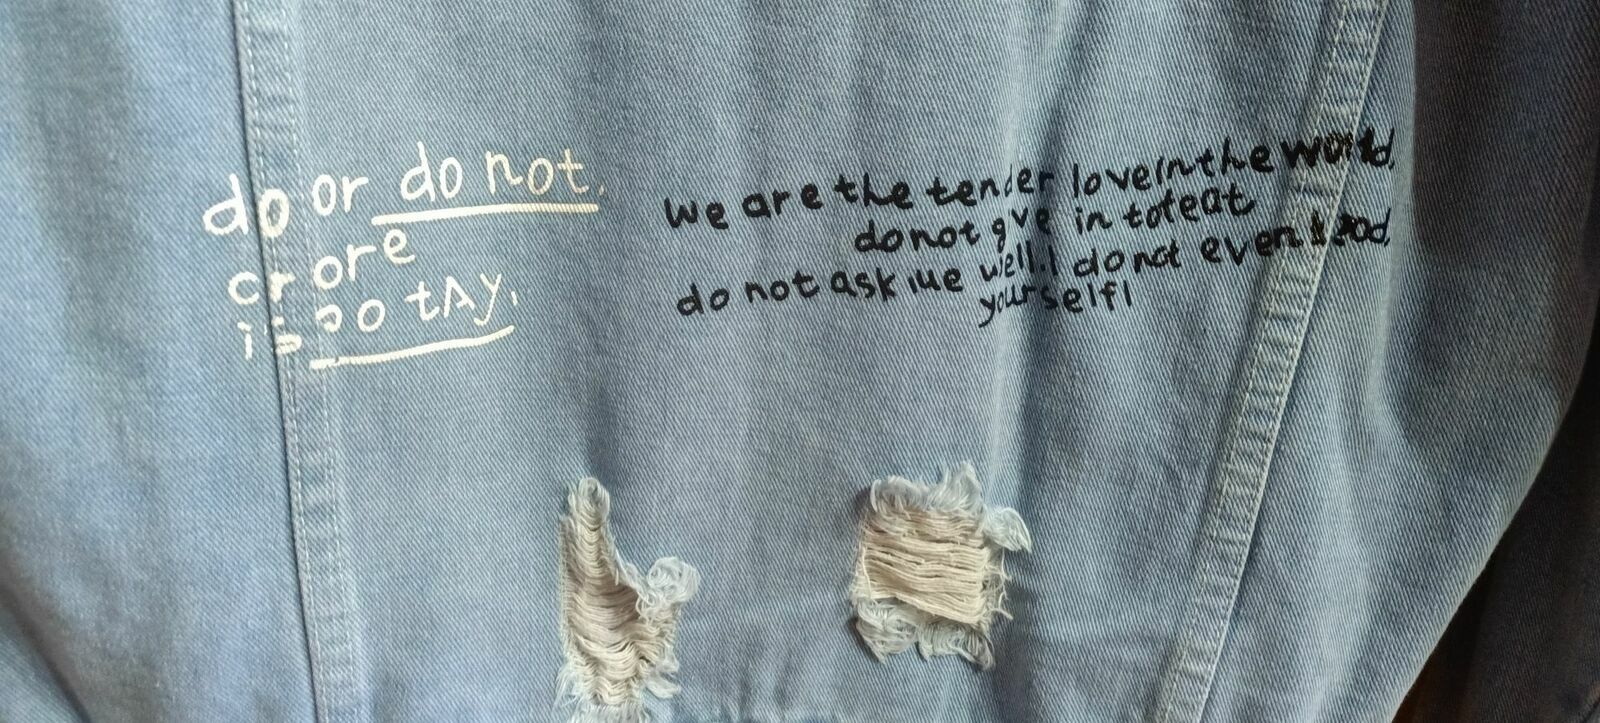 do or do not.
cr ore
is 2o tAy.
we are the tender love in the world.
do not give in to teat
do not ask me well. I do not even
yourself!